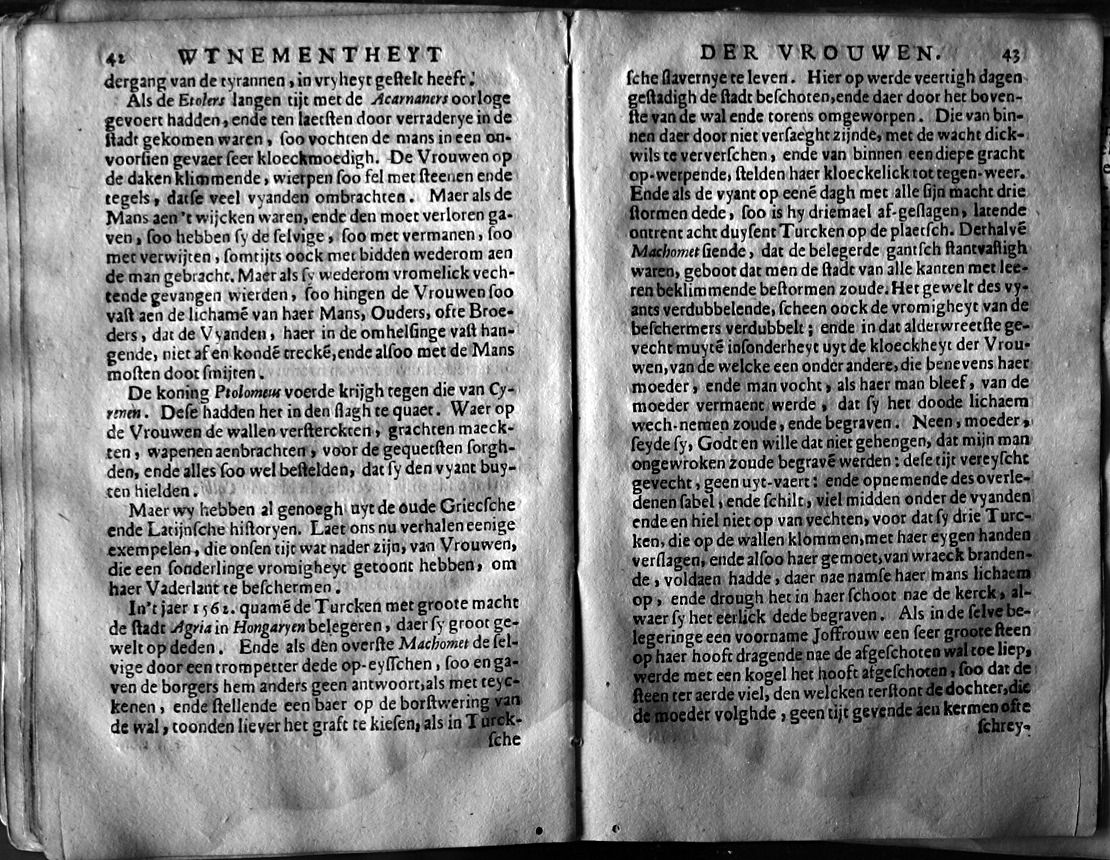 42 WTNEMENTHEYT
dergang van de tyrannen, in vryheyt geſtelt heeft.
Als de Etolers langen tijt met de Acarnaners oorloge
gevoert hadden, ende ten laetſten door verraderye in de
ſtadt gekomen waren, ſoo vochten de mans in een on-
voorſien gevaer ſeer kloeckmoedigh. De Vrouwen op
de daken klimmende, wierpen ſoo fel met ſteenen ende
tegels, datſe veel vyanden ombrachten. Maer als de
Mans aen't wijcken waren, ende den moet verloren ga-
ven, ſoo hebben ſy de ſelvige, ſoo met vermanen, ſoo
met verwijten, ſomtijts oock met bidden wederom aen
de man gebracht. Maer als ſy wederom vromelick vech-
tende gevangen wierden, ſoo hingen de Vrouwen ſoo
vaſt aen de lichamē van haer Mans, Ouders, ofte Broe-
ders, dat de Vyanden, haer in de omhelſinge vaſt han-
gende, niet af en kondē treckē, ende alſoo met de Mans
moſten doot ſmijten.
De koning Ptolomeus voerde krijgh tegen die van Cy-
renen. Deſe hadden het in den ſlagh te quaet. Waer op
de Vrouwen de wallen verſterckten, grachten maeck-
ten, wapenen aenbrachten, voor de gequetſten ſorgh-
den, ende alles ſoo wel beſtelden, dat ſy den vyant buy-
ten hielden.
Maer wy hebben al genoegh uyt de oude Grieсſche
ende Latijnſche hiſtoryen. Laet ons nu verhalen eenige
exempelen, die onſen tijt wat nader zijn, van Vrouwen,
die een ſonderlinge vromigheyt getoont hebben, om
haer Vaderlant te beſchermen.
In't jaer 1562. quamē de Turcken met groote macht
de ſtadt Agria in Hongaryen belegeren, daer ſy groot ge-
welt op deden. Ende als den overſte Machomet de ſel-
vige door een trompetter dede op-eyſſchen, ſoo en ga-
ven de borgers hem anders geen antwoort, als met teyc-
kenen, ende ſtellende een baer op de borſtwering van
de wal, toonden liever het graft te kieſen, als in Turck-
ſche
DER VROUWEN. 43
ſche ſlavernye te leven. Hier op werde veertigh dagen
geſtadigh de ſtadt beſchoten, ende daer door het boven-
ſte van de wal ende torens omgeworpen. Die van bin-
nen daer door niet verſaeght zijnde, met de wacht dick-
wils te ververſchen, ende van binnen een diepe gracht
op-werpende, ſtelden haer kloeckelick tot tegen-weer.
Ende als de vyant op eenē dagh met alle ſijn macht drie
ſtormen dede, ſoo is hy driemael af-geſlagen, latende
ontrent acht duyſent Turcken op de plaetſch. Derhalvē
Machomet ſiende, dat de belegerde gantſch ſtantvaſtigh
waren, geboot dat men de ſtadt van alle kanten met lee-
ren beklimmende beſtormen zoude. Het gewelt des vy-
ants verdubbelende, ſcheen oock de vromigheyt van de
beſchermers verdubbelt; ende in dat alderwreetſte ge-
vecht muytē inſonderheyt uyt de kloeckheyt der Vrou-
wen, van de welcke een onder andere, die benevens haer
moeder, ende man vocht, als haer man bleef, van de
moeder vermaent werde, dat ſy het doode lichaem
wech-nemen zoude, ende begraven. Neen, moeder,
ſeyde ſy, Godt en wille dat niet gehengen, dat mijn man
ongewroken zoude begravē werden: deſe tijt vereyſcht
gevecht, geen uyt-vaert: ende opnemende des overle-
denen ſabel, ende ſchilt, viel midden onder de vyanden
ende en hiel niet op van vechten, voor dat ſy drie Turc-
ken, die op de wallen klommen, met haer eygen handen
verſlagen, ende alſoo haer gemoet, van wraeck branden-
de, voldaen hadde, daer nae namſe haer mans lichaem
op, ende drough het in haer ſchoot nae de kerck, al-
waer ſy het eerlick dede begraven. Als in de ſelve be-
legeringe een voorname Joffrouw een ſeer groote ſteen
op haer hooft dragende nae de afgeſchoten wal toe liep,
werde met een kogel het hooft afgeſchoten, ſoo dat de
ſteen ter aerde viel, den welcken terſtont de dochter, die
de moeder volghde, geen tijt gevende aen kermen ofte
ſchrey-